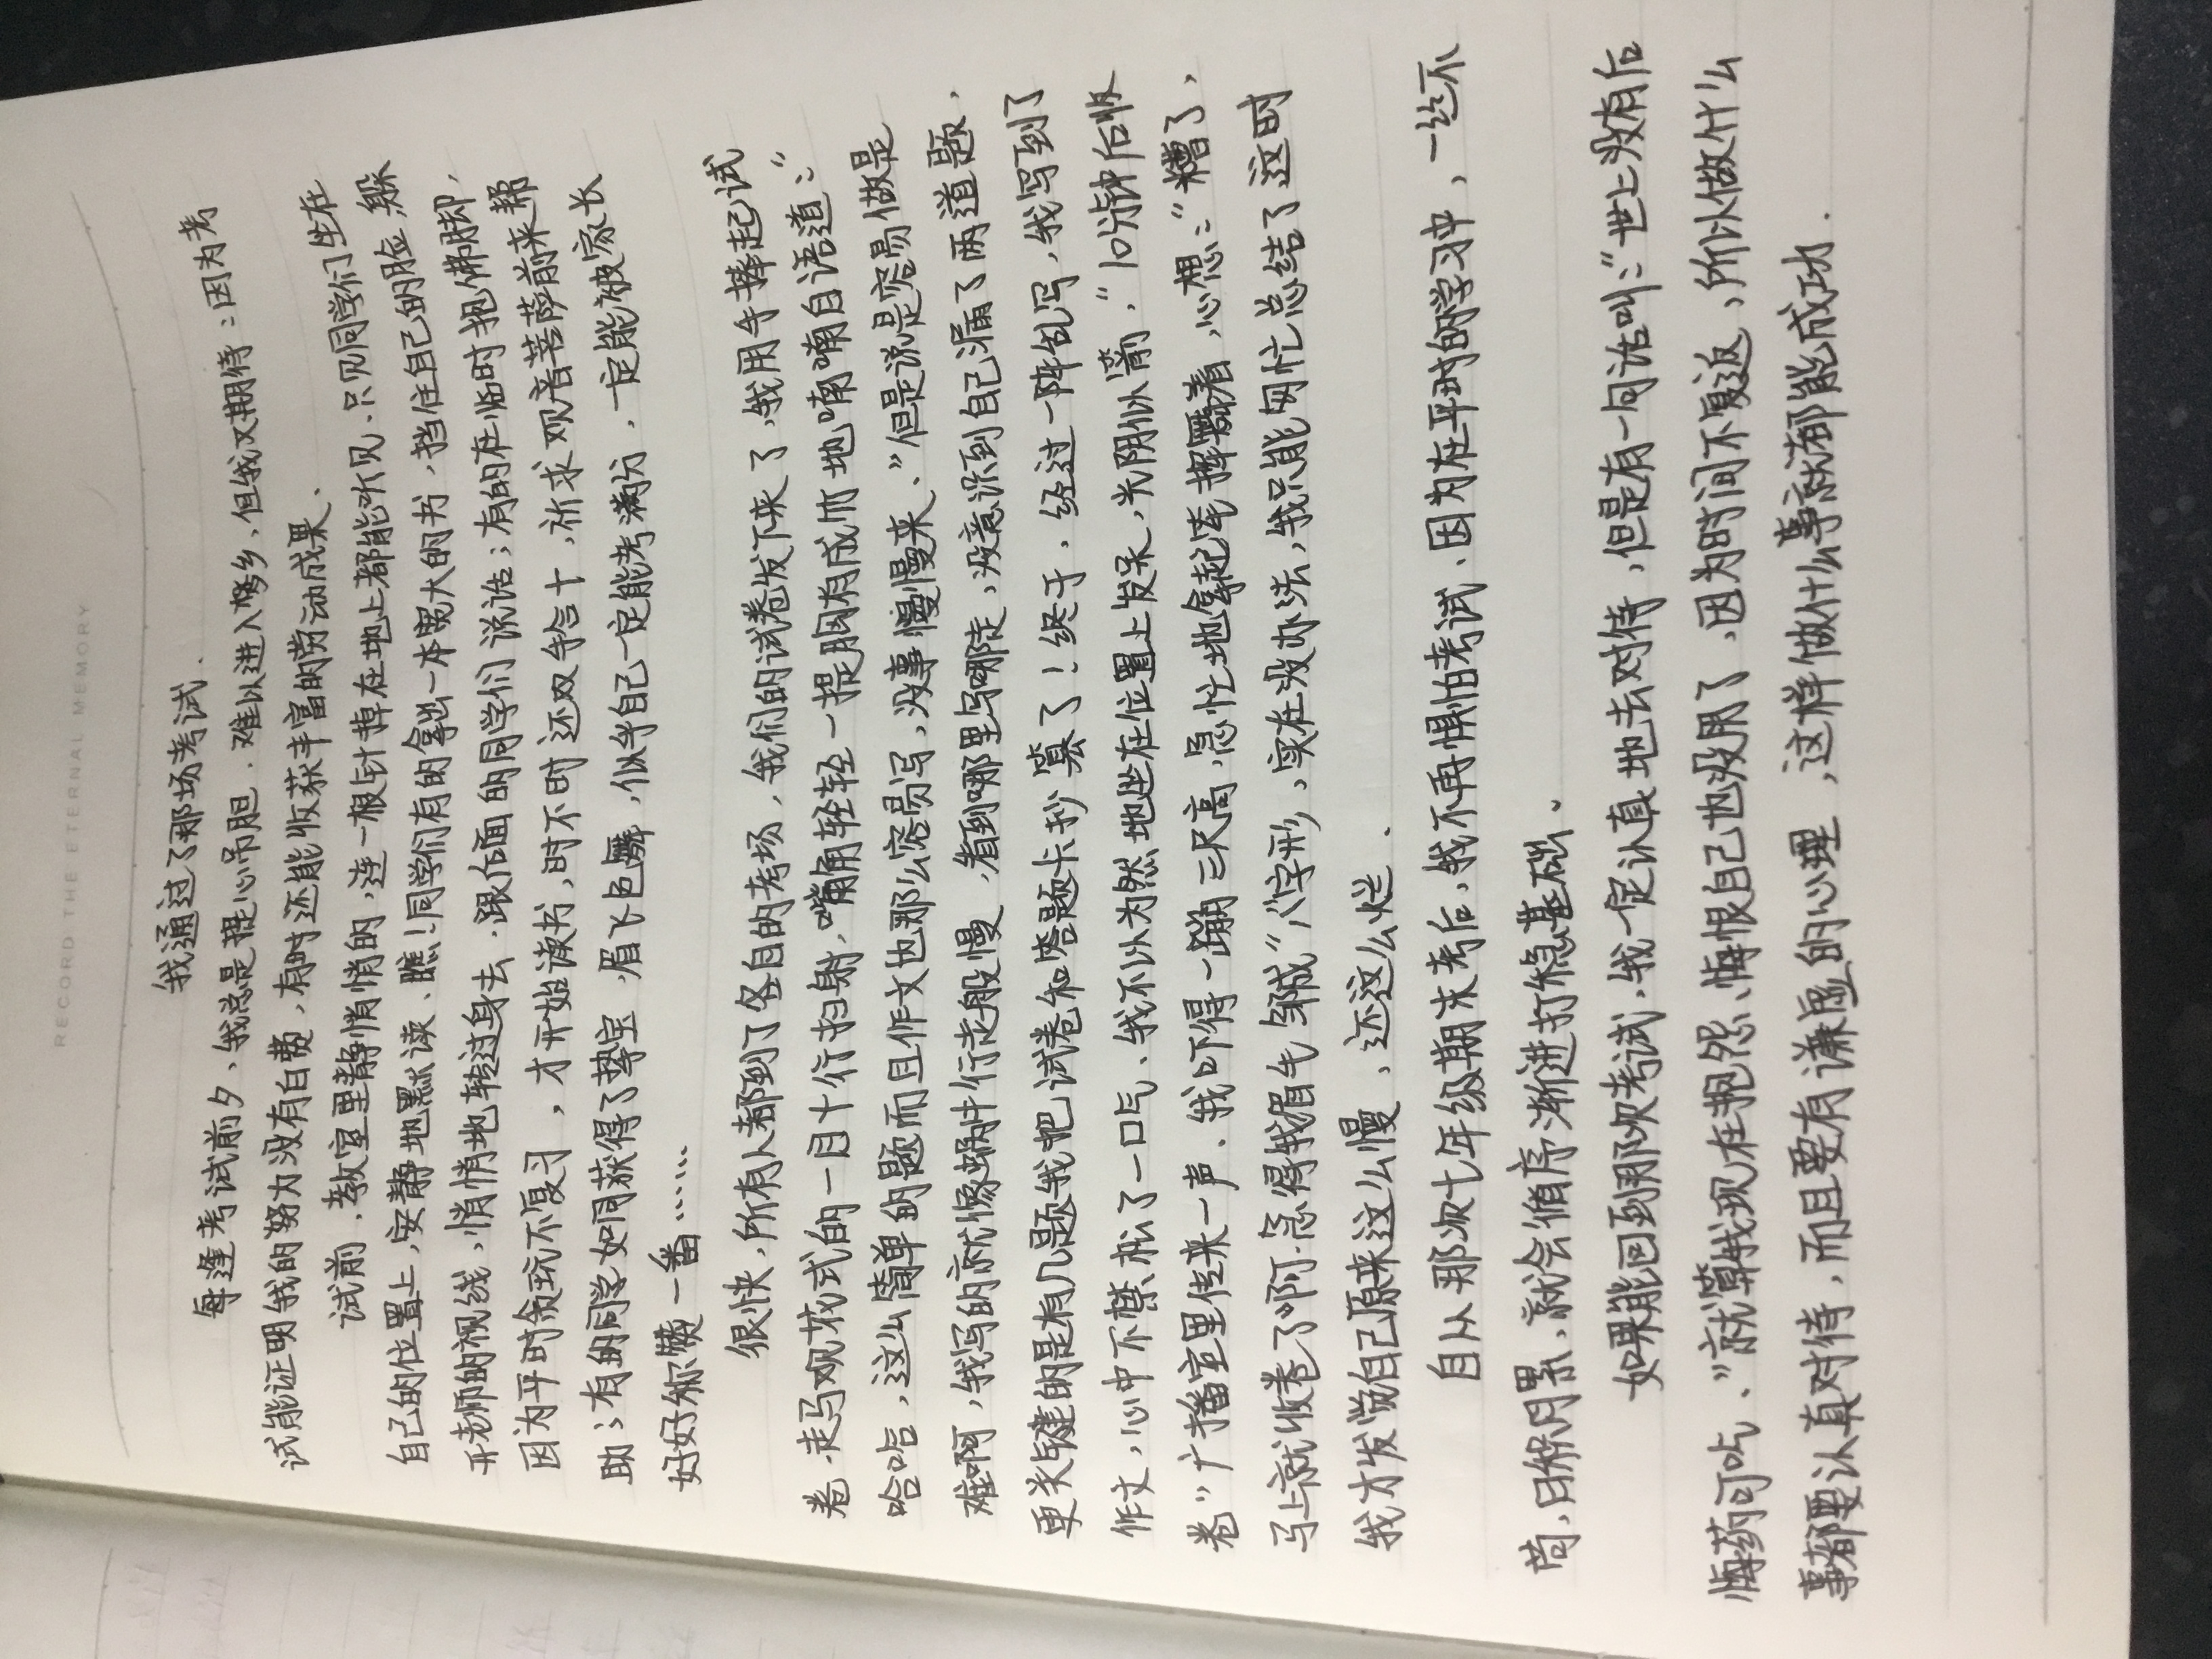 RECORD THE ETERNAL MEMORY
我通过了那场考试.
每逢考试前夕、我总是提心吊胆．难以进入梦乡、但我又期待：因为考
试能证明我的努力没有白费，有时还能收获丰富的劳动成果、
试前．教室里静悄悄的，连一根针掉在地上都能听见、只见同学们坐在
自己的位置上，安静地默读、瞧！同学们有的拿出一本宽大的书，挡住自己的脸躲
开老师的视线，悄悄地转过身去．跟后面的同学们说话；有的在临时抱佛脚，
因为平时贪玩不复习，才开始读书，时不时还双手合十，祈求观音菩萨前来帮
助；有的同学如同获得了挚宝．眉飞色舞，似乎自己一定能考满分，一定能被家长
好好称赞一番……
很快，所有人都到了各自的考场，我们的试卷发下来了，我用手捧起试
卷．走马观花式的一目十行扫射，嘴角轻轻一提胸有成竹地喃喃自语道："
哈哈，这么简单的题而且作文也那么容易写，没事慢慢来、"但是说是容易做是
难啊，我写的就像蜗牛行走般慢，看到哪里写哪走，没意识到自己漏了两道题，
更关键的是有几题我吧试卷和答题卡抄篡了！终于，经过一阵乱写，我写到了
作文，心中不禁松了一口气、我不以为然地坐在位置上发呆，光阴似箭，"10分钟后收
卷"广播室里传来一声、我吓得一蹦三尺高，急忙地拿起笔挥霍着，心想："糟了，
马上就收卷了啊.急得我眉毛邹成"八"字形，实在没办法，我只能匆忙总结了这时
我才发觉自己原来这么慢，还这么烂．
自从那次七年级期末考后，我不再惧怕考试、因为在平时的学习中，一丝不
苟，日积月累、就会循序渐进打稳基础。
如果能回到那次考试，我一定认真地去对待，但是有一句话叫："世上没有后
悔药可吃、"就算我现在抱怨、悔恨自己也没用了，因为时间不复返，所以做什么
事都要认真对待，而且要有谦虚的心理，这样做什么事就都能成功．